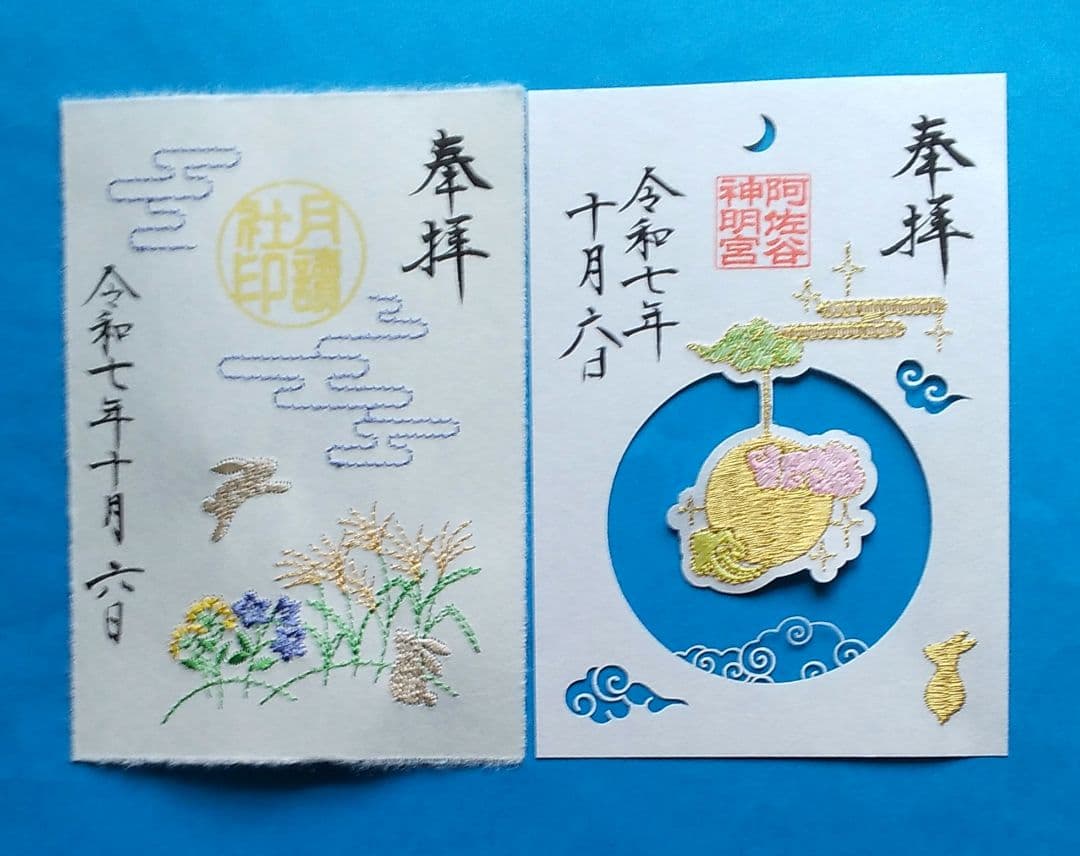 奉拝
月讀
社印
令和七年十月六日
奉拝
阿佐谷
神明宮
令和七年
十月六日